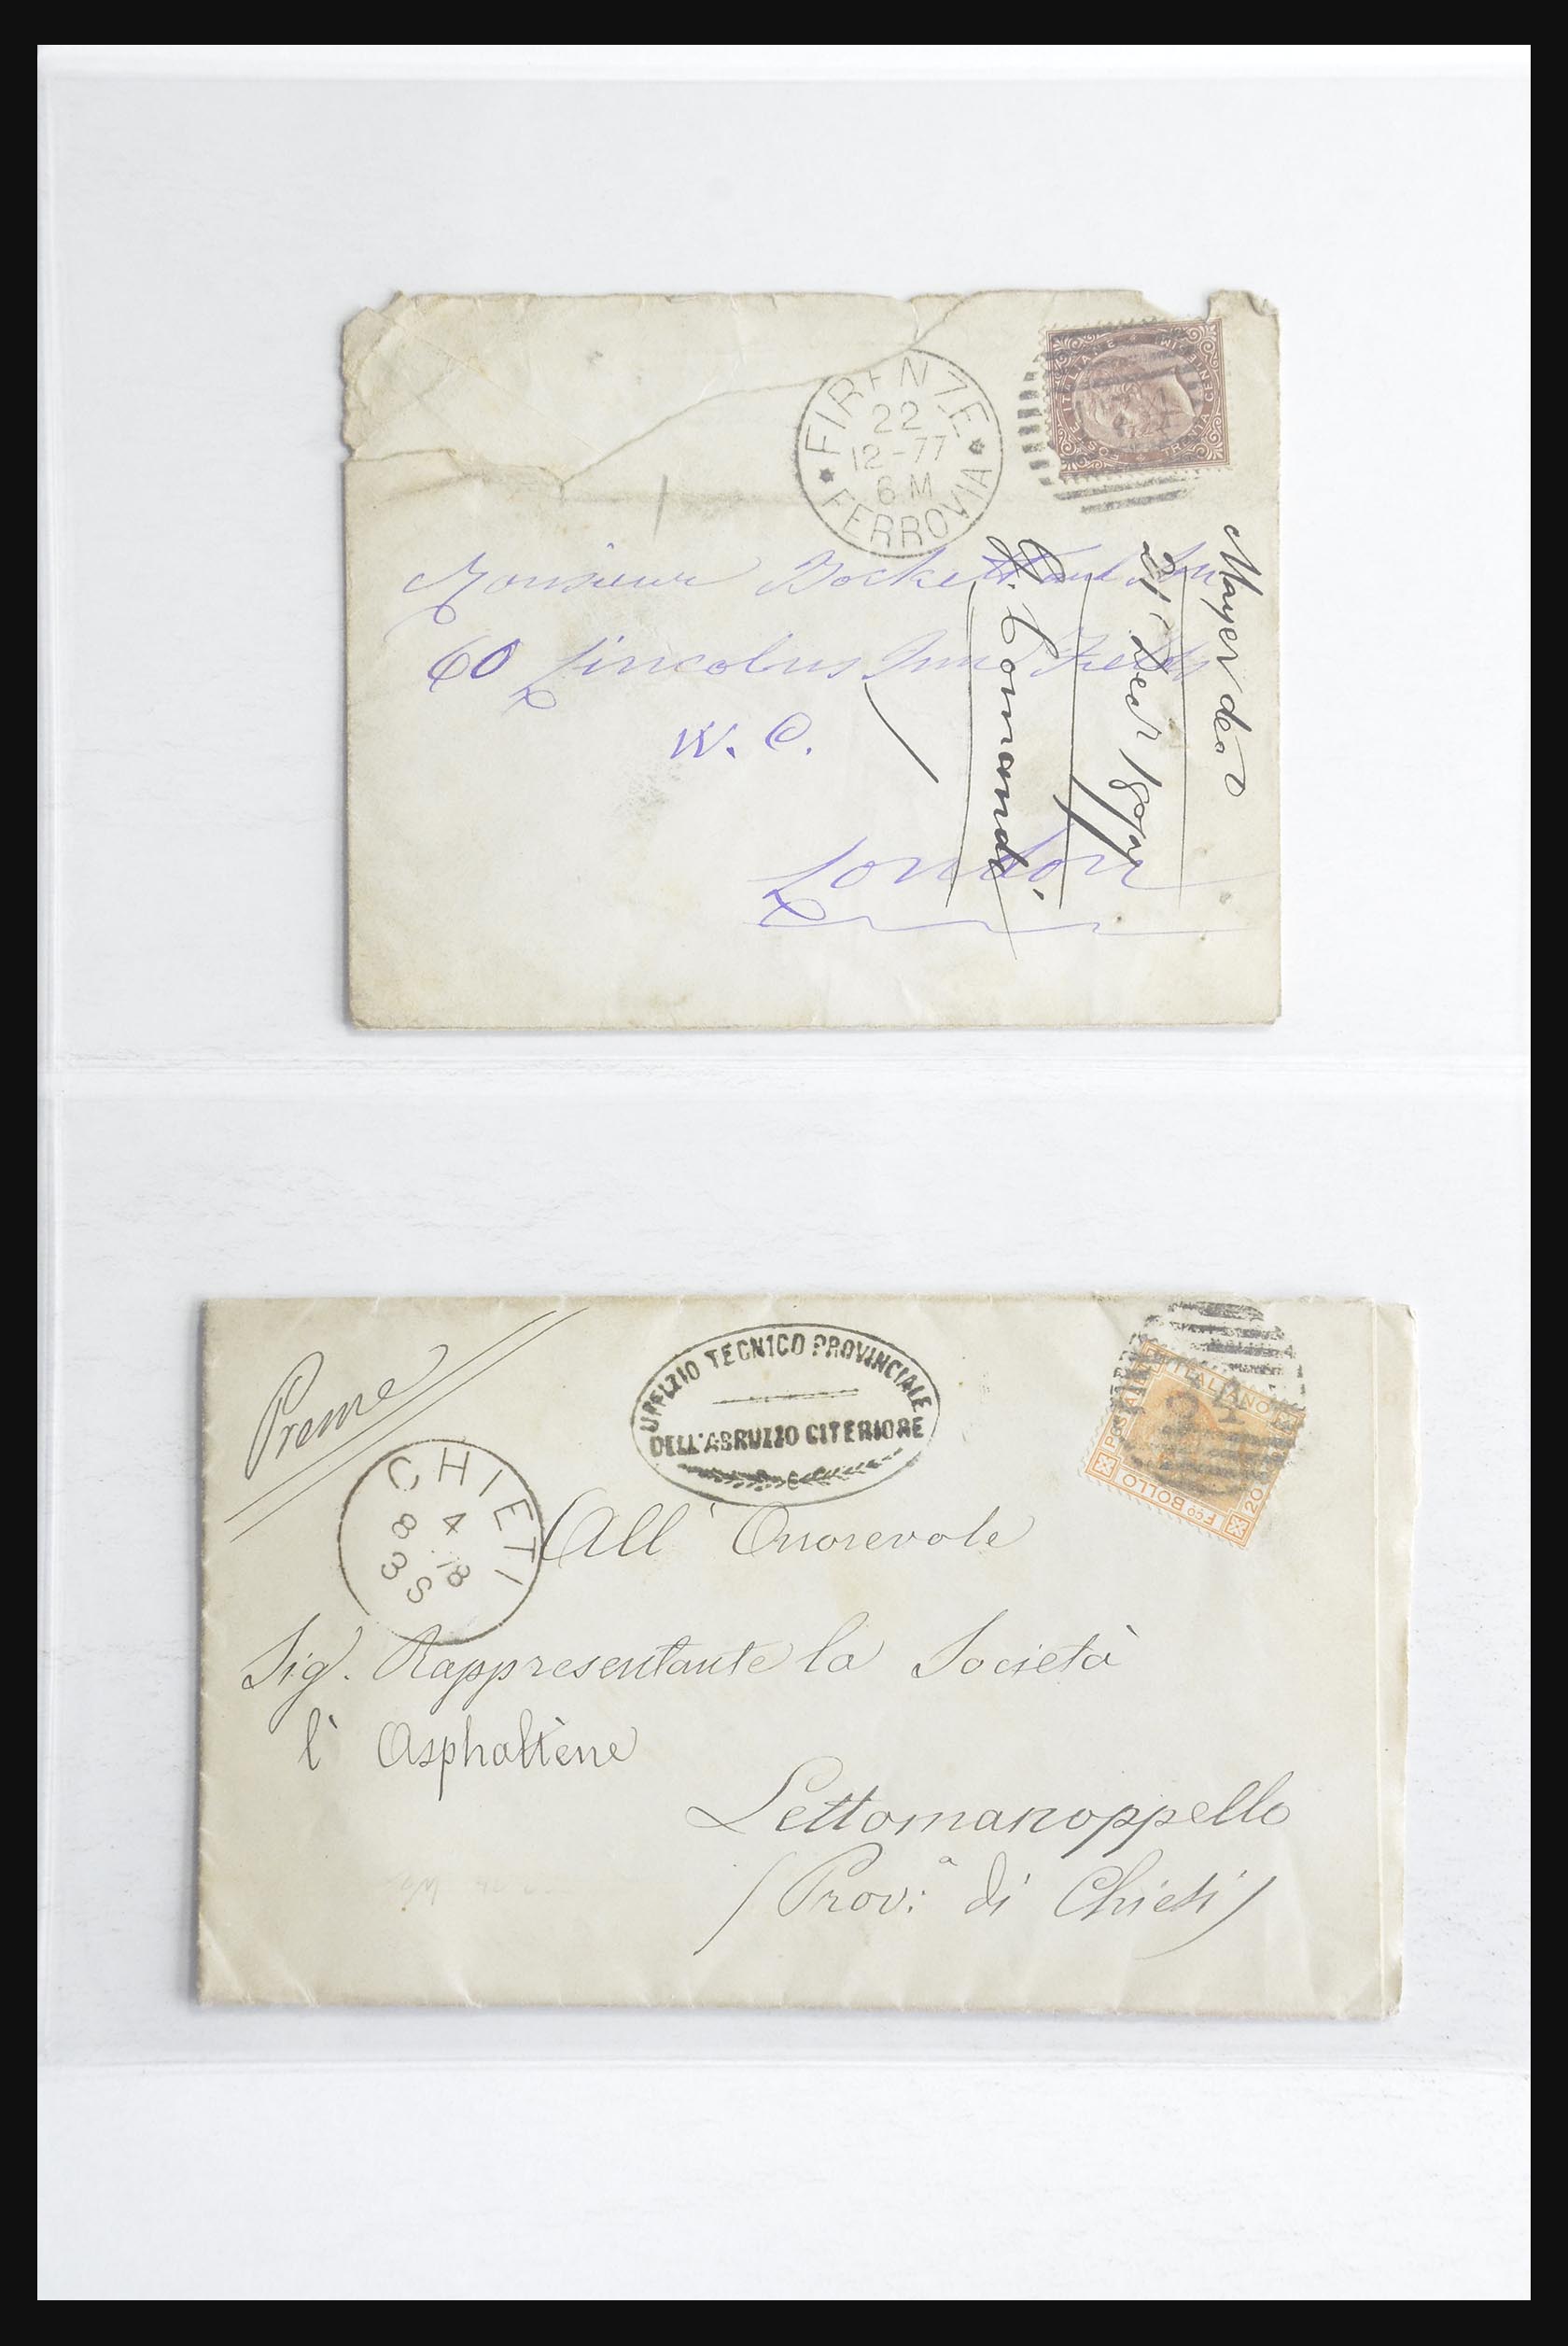 FIRENZE
22
12-77
6 M
FERROVIA
POSTE ITALIANE
TRENTA CENTESIMI
Monsieur Bockett and Son
60 Lincolns Inn Fields
W. C.
London
Mayer decd
21 Decr 1877
G. Comandi
Preme
UFFIZIO TECNICO PROVINCIALE
DELL'ABRUZZO CITERIORE
CHIETI
4 8
8 3 S
ITALIANO
POSTALE
Fco BOLLO
20
All' Onorevole
Sig. Rappresentante la Società
l' Asphaltène
Lettomanoppello
(Prov:a di Chieti)